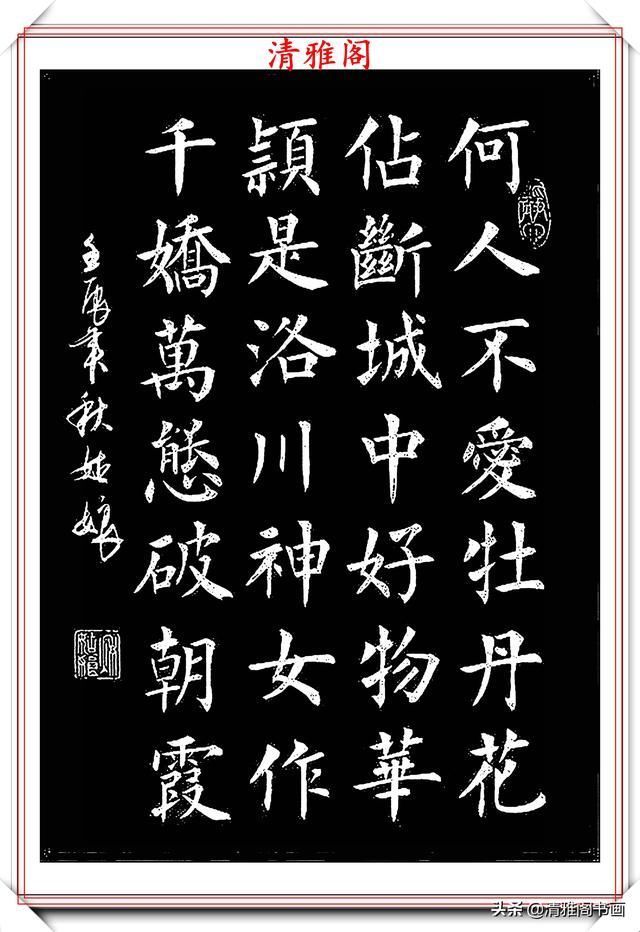 清雅阁
何人不愛牡丹花
佔斷城中好物華
顈是洛川神女作
千嬌萬態破朝霞
秋姑娘
头条 @清雅阁书画